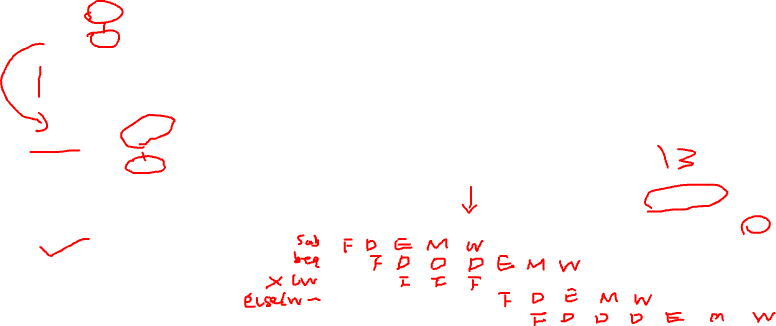 13
sub F D E M W
beq F D D D E M W
X lw F F F
else lw F D E M W
F D D D E M W